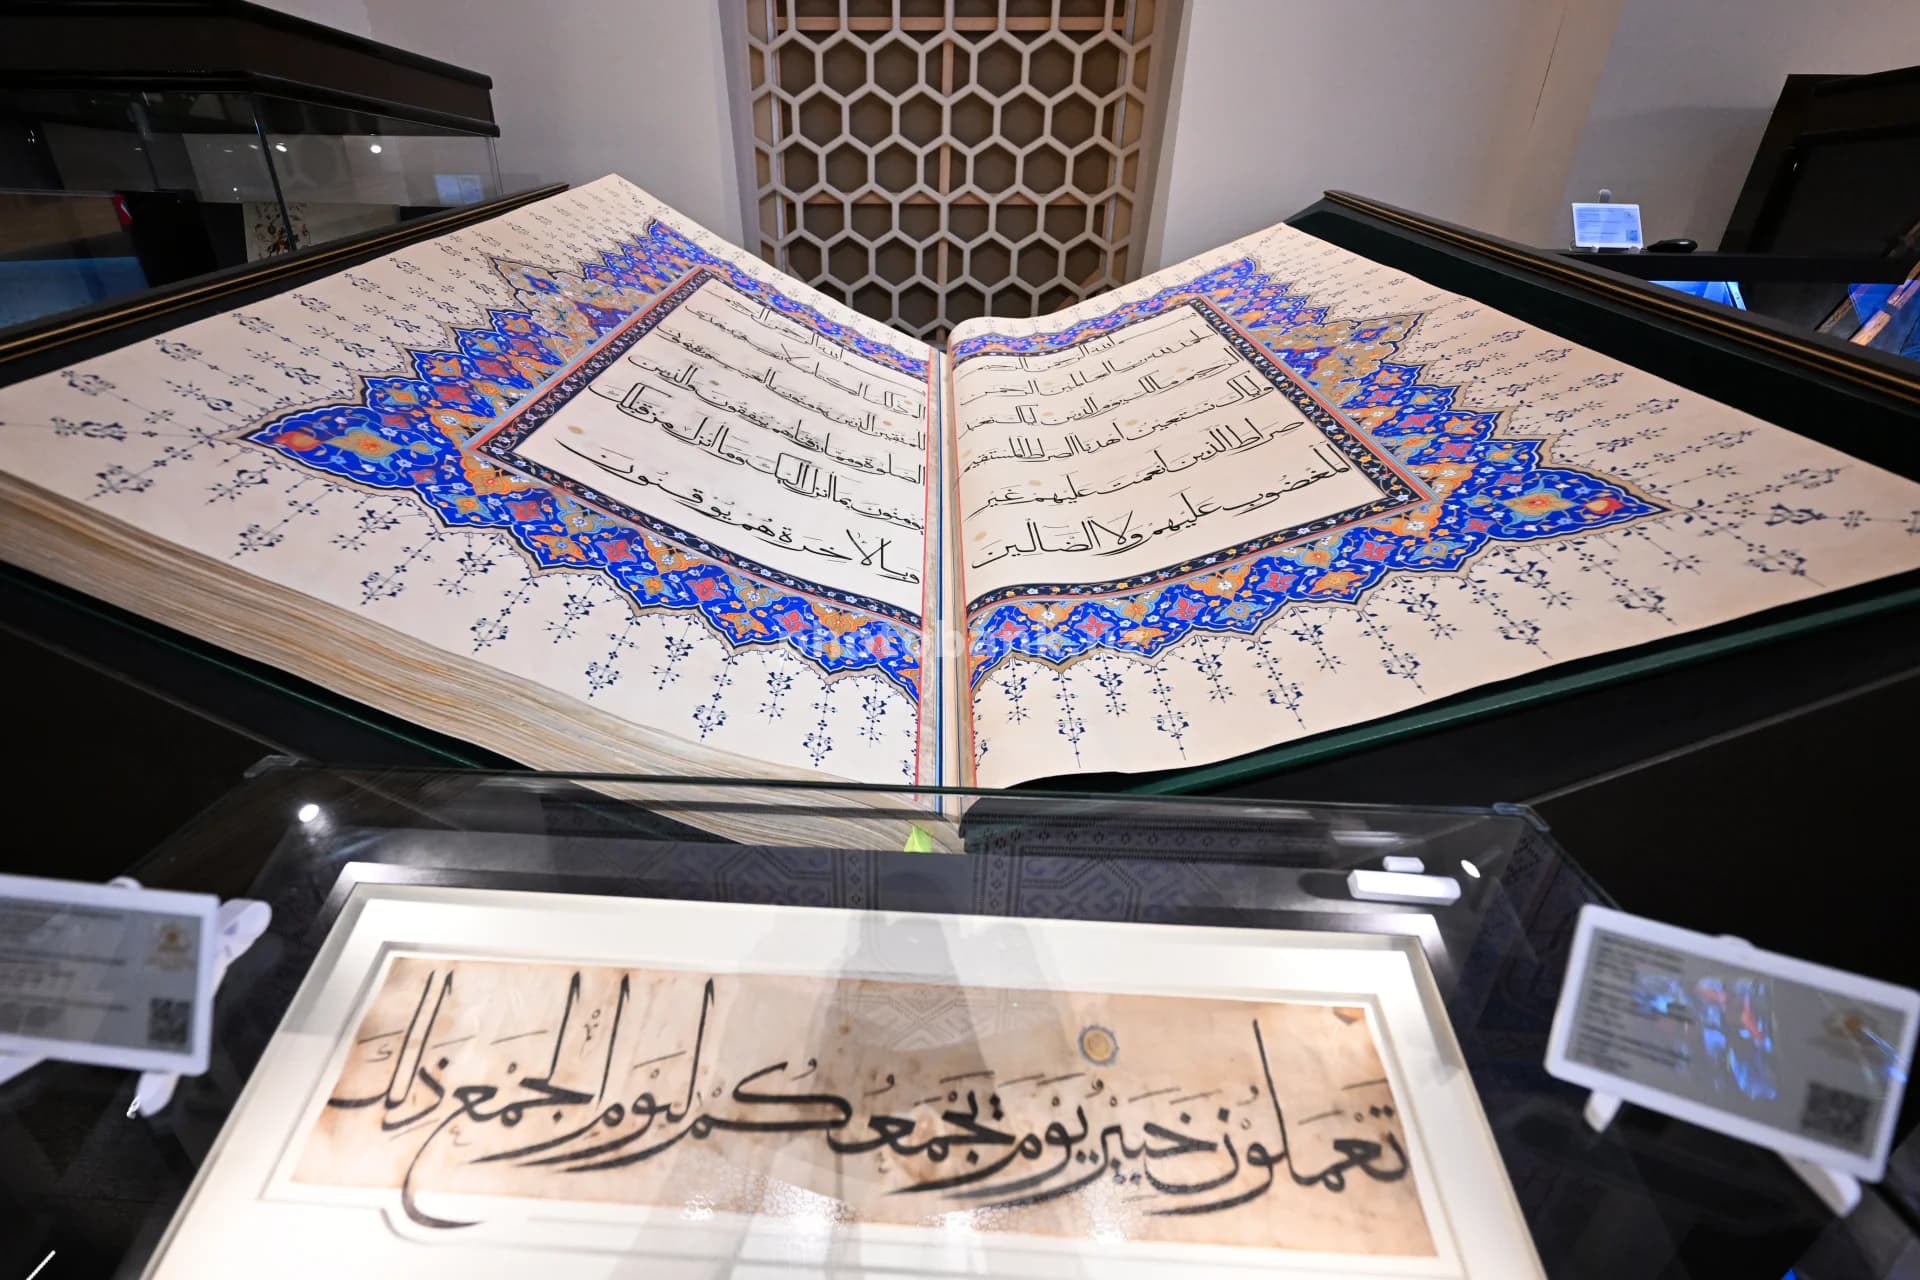 بسم الله الرحمن الرحيم
الحمد لله رب العالمين الرحمن
الرحيم مالك يوم الدين اياك نعبد
واياك نستعين اهدنا الصراط المستقيم
صراط الذين انعمت عليهم غير
المغضوب عليهم ولا الضالين
بسم الله الرحمن الرحيم
الم ذلك الكتاب لا ريب فيه هدى
للمتقين الذين يؤمنون بالغيب ويقيمون
الصلوة ومما رزقناهم ينفقون والذين
يؤمنون بما انزل اليك وما انزل من قبلك
وبالاخرة هم يوقنون
تعملون خبير يوم يجمعكم ليوم الجمع ذلك
photobank.uz